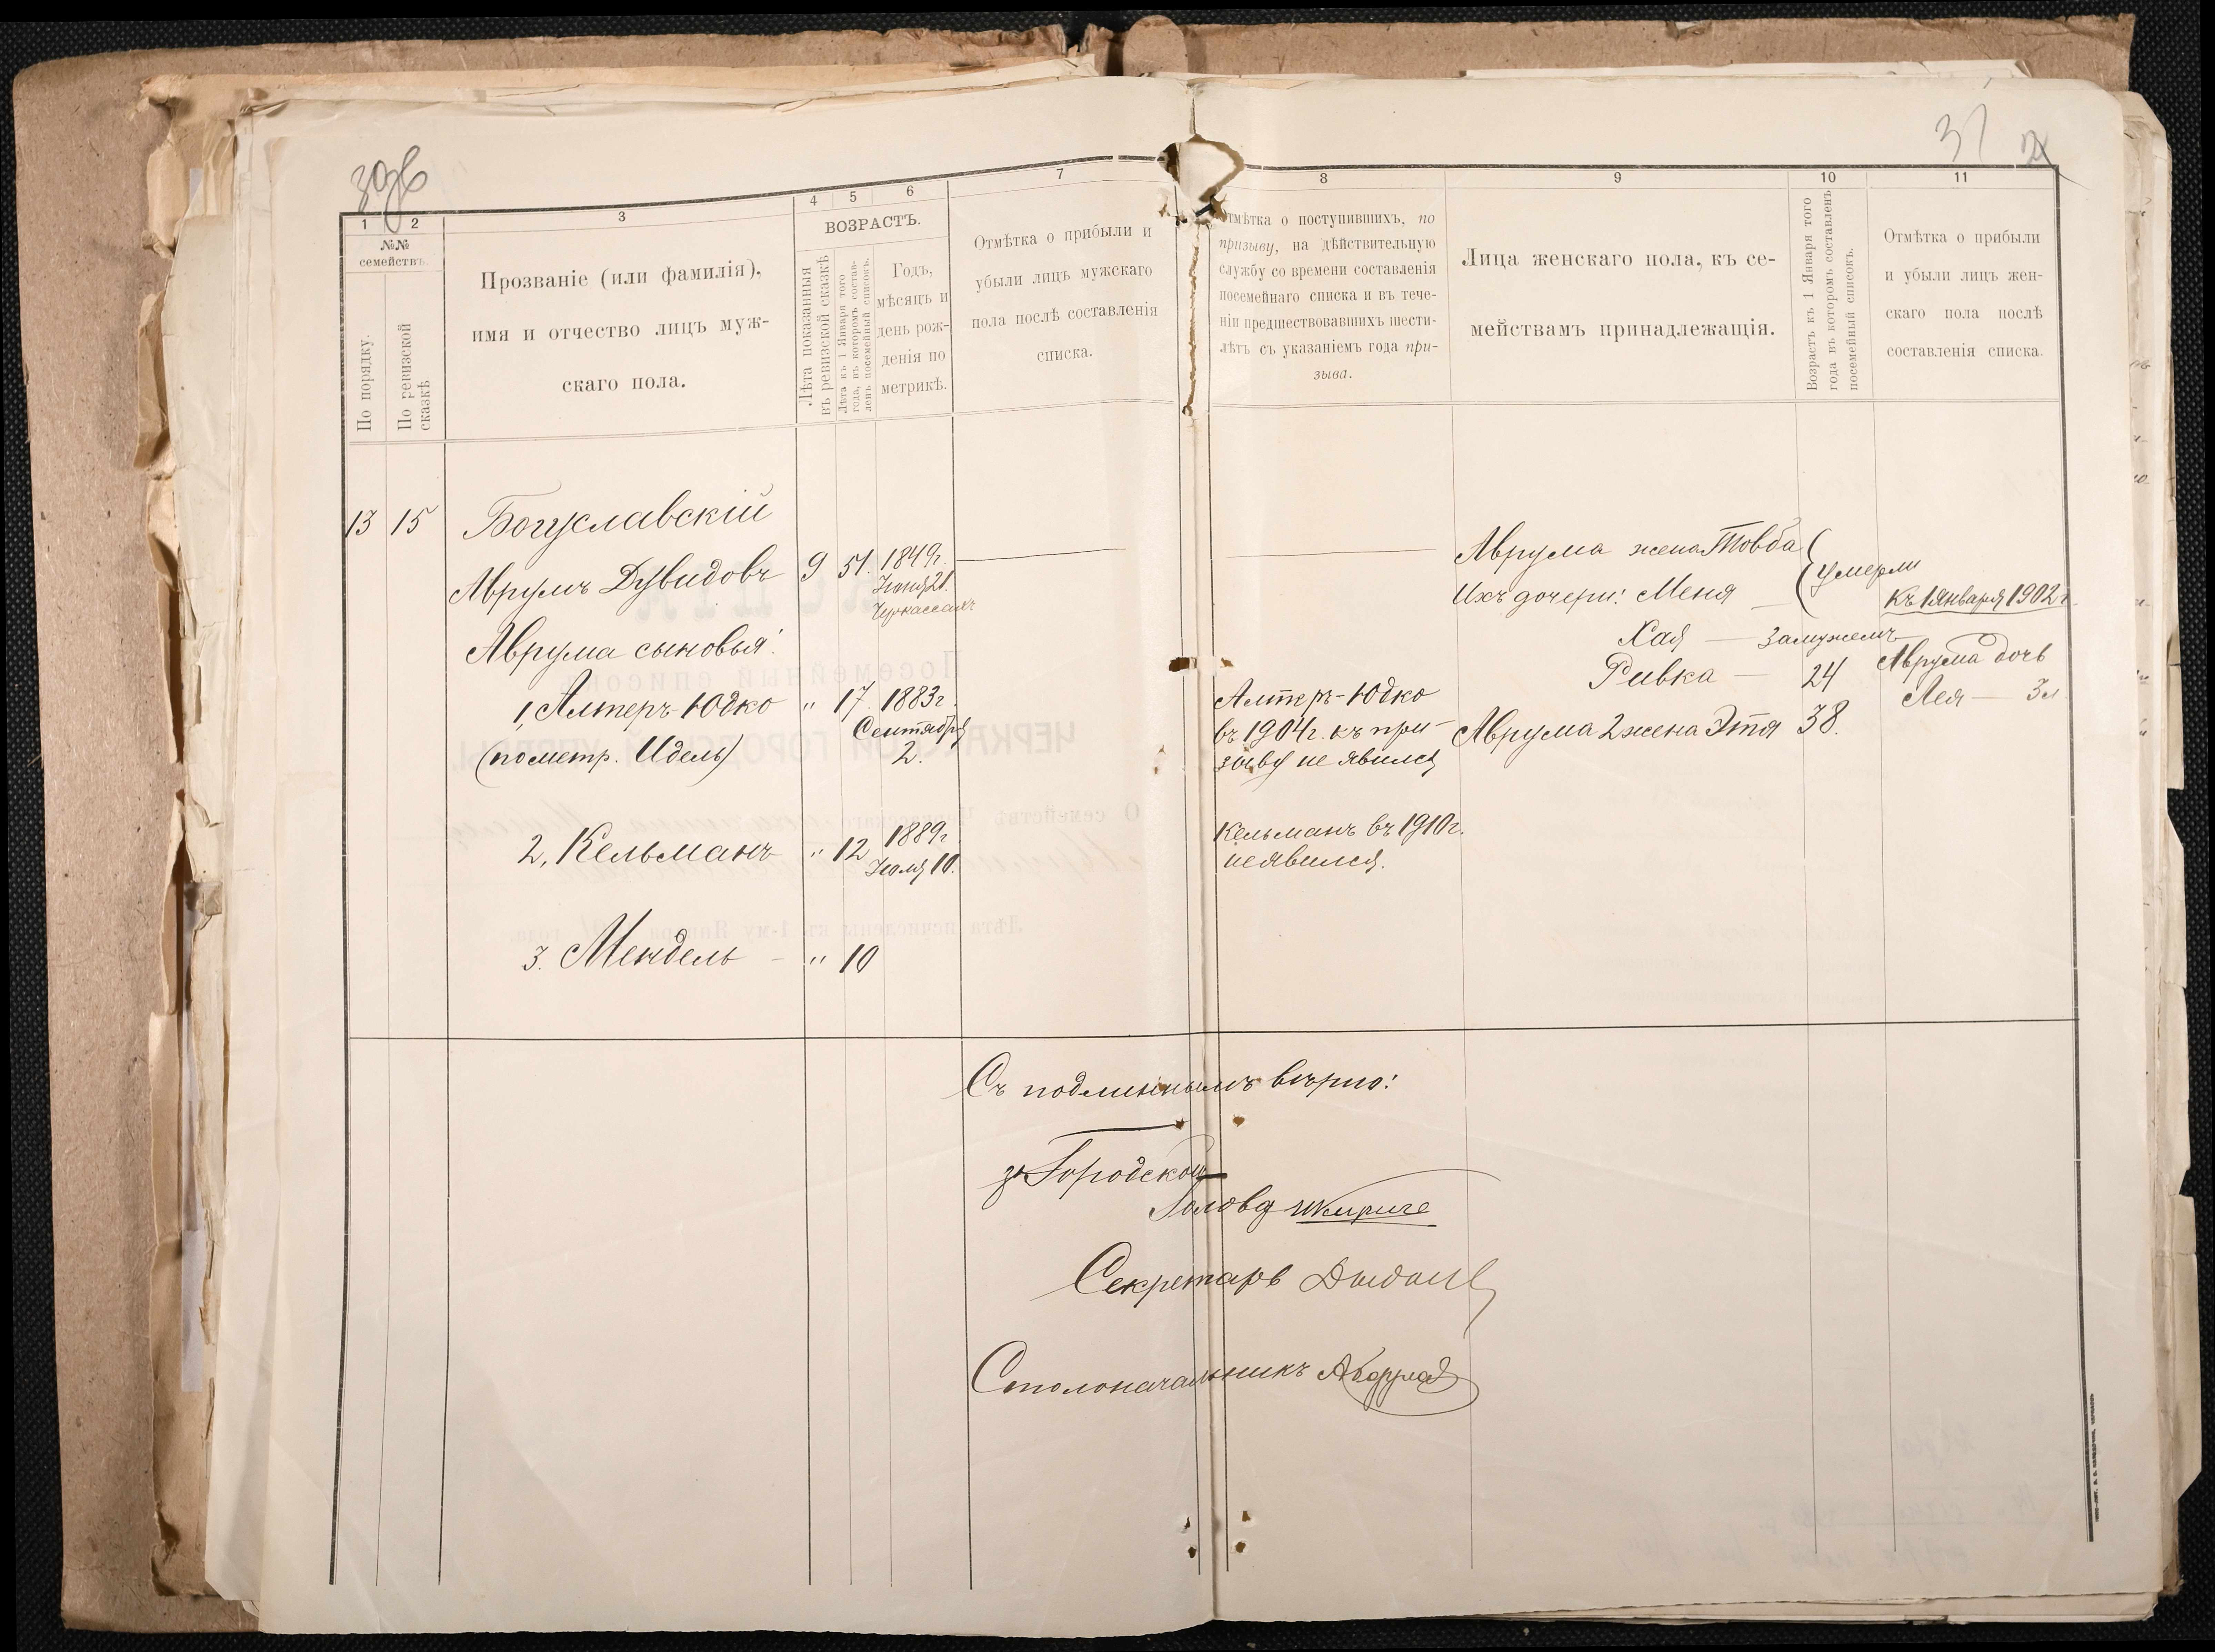 30об
37
1
2
3
4
5
6
7
8
9
10
11
№№
семействъ.
По порядку.
По ревизской
сказкѣ
Прозваніе (или фамилія),
имя и отчество лицъ муж-
скаго пола.
ВОЗРАСТЪ.
Лѣта показанныя
въ ревизской сказкѣ
Лѣта къ 1 Января того
года, въ которомъ состав-
ленъ посемейный списокъ.
Годъ,
мѣсяцъ и
день рож-
денія по
метрикѣ.
Отмѣтка о прибыли и
убыли лицъ мужскаго
пола послѣ составленія
списка.
Отмѣтка о поступившихъ, по
призыву, на дѣйствительную
службу со времени составленія
посемейнаго списка и въ тече-
ніи предшествовавшихъ шести-
лѣтъ съ указаніемъ года при-
зыва.
Лица женскаго пола, къ се-
мействамъ принадлежащія.
Возрастъ къ 1 Января того
года въ которомъ составленъ
посемейный списокъ.
Отмѣтка о прибыли
и убыли лицъ жен-
скаго пола послѣ
составленія списка.
13 15 Богуславскій
Аврумъ Дувидовъ 9 51. 1849г.
Іюня 21.
Черкассахъ
Аврума сыновья:
1, Алтеръ-Юдко " 17. 1883г.
(по метр. Идель) Сентября
2.
2, Кельманъ " 12 1889г
Іюля 10.
3. Мендель - " 10
Алтеръ-Юдко
въ 1904г. къ при-
зыву не явился
Кельманъ въ 1910г.
не явился.
Аврума жена Товба
Ихъ дочери: Меня
умерли
Хая — замужемъ
Ривка — 24
Аврума 2 жена Этя 38.
Къ 1 Января 1902г.
Аврума дочь
Лея — 3 л
Съ подлиннымъ вѣрно:
за Городского
Голову
Секретарь
Столоначальникъ